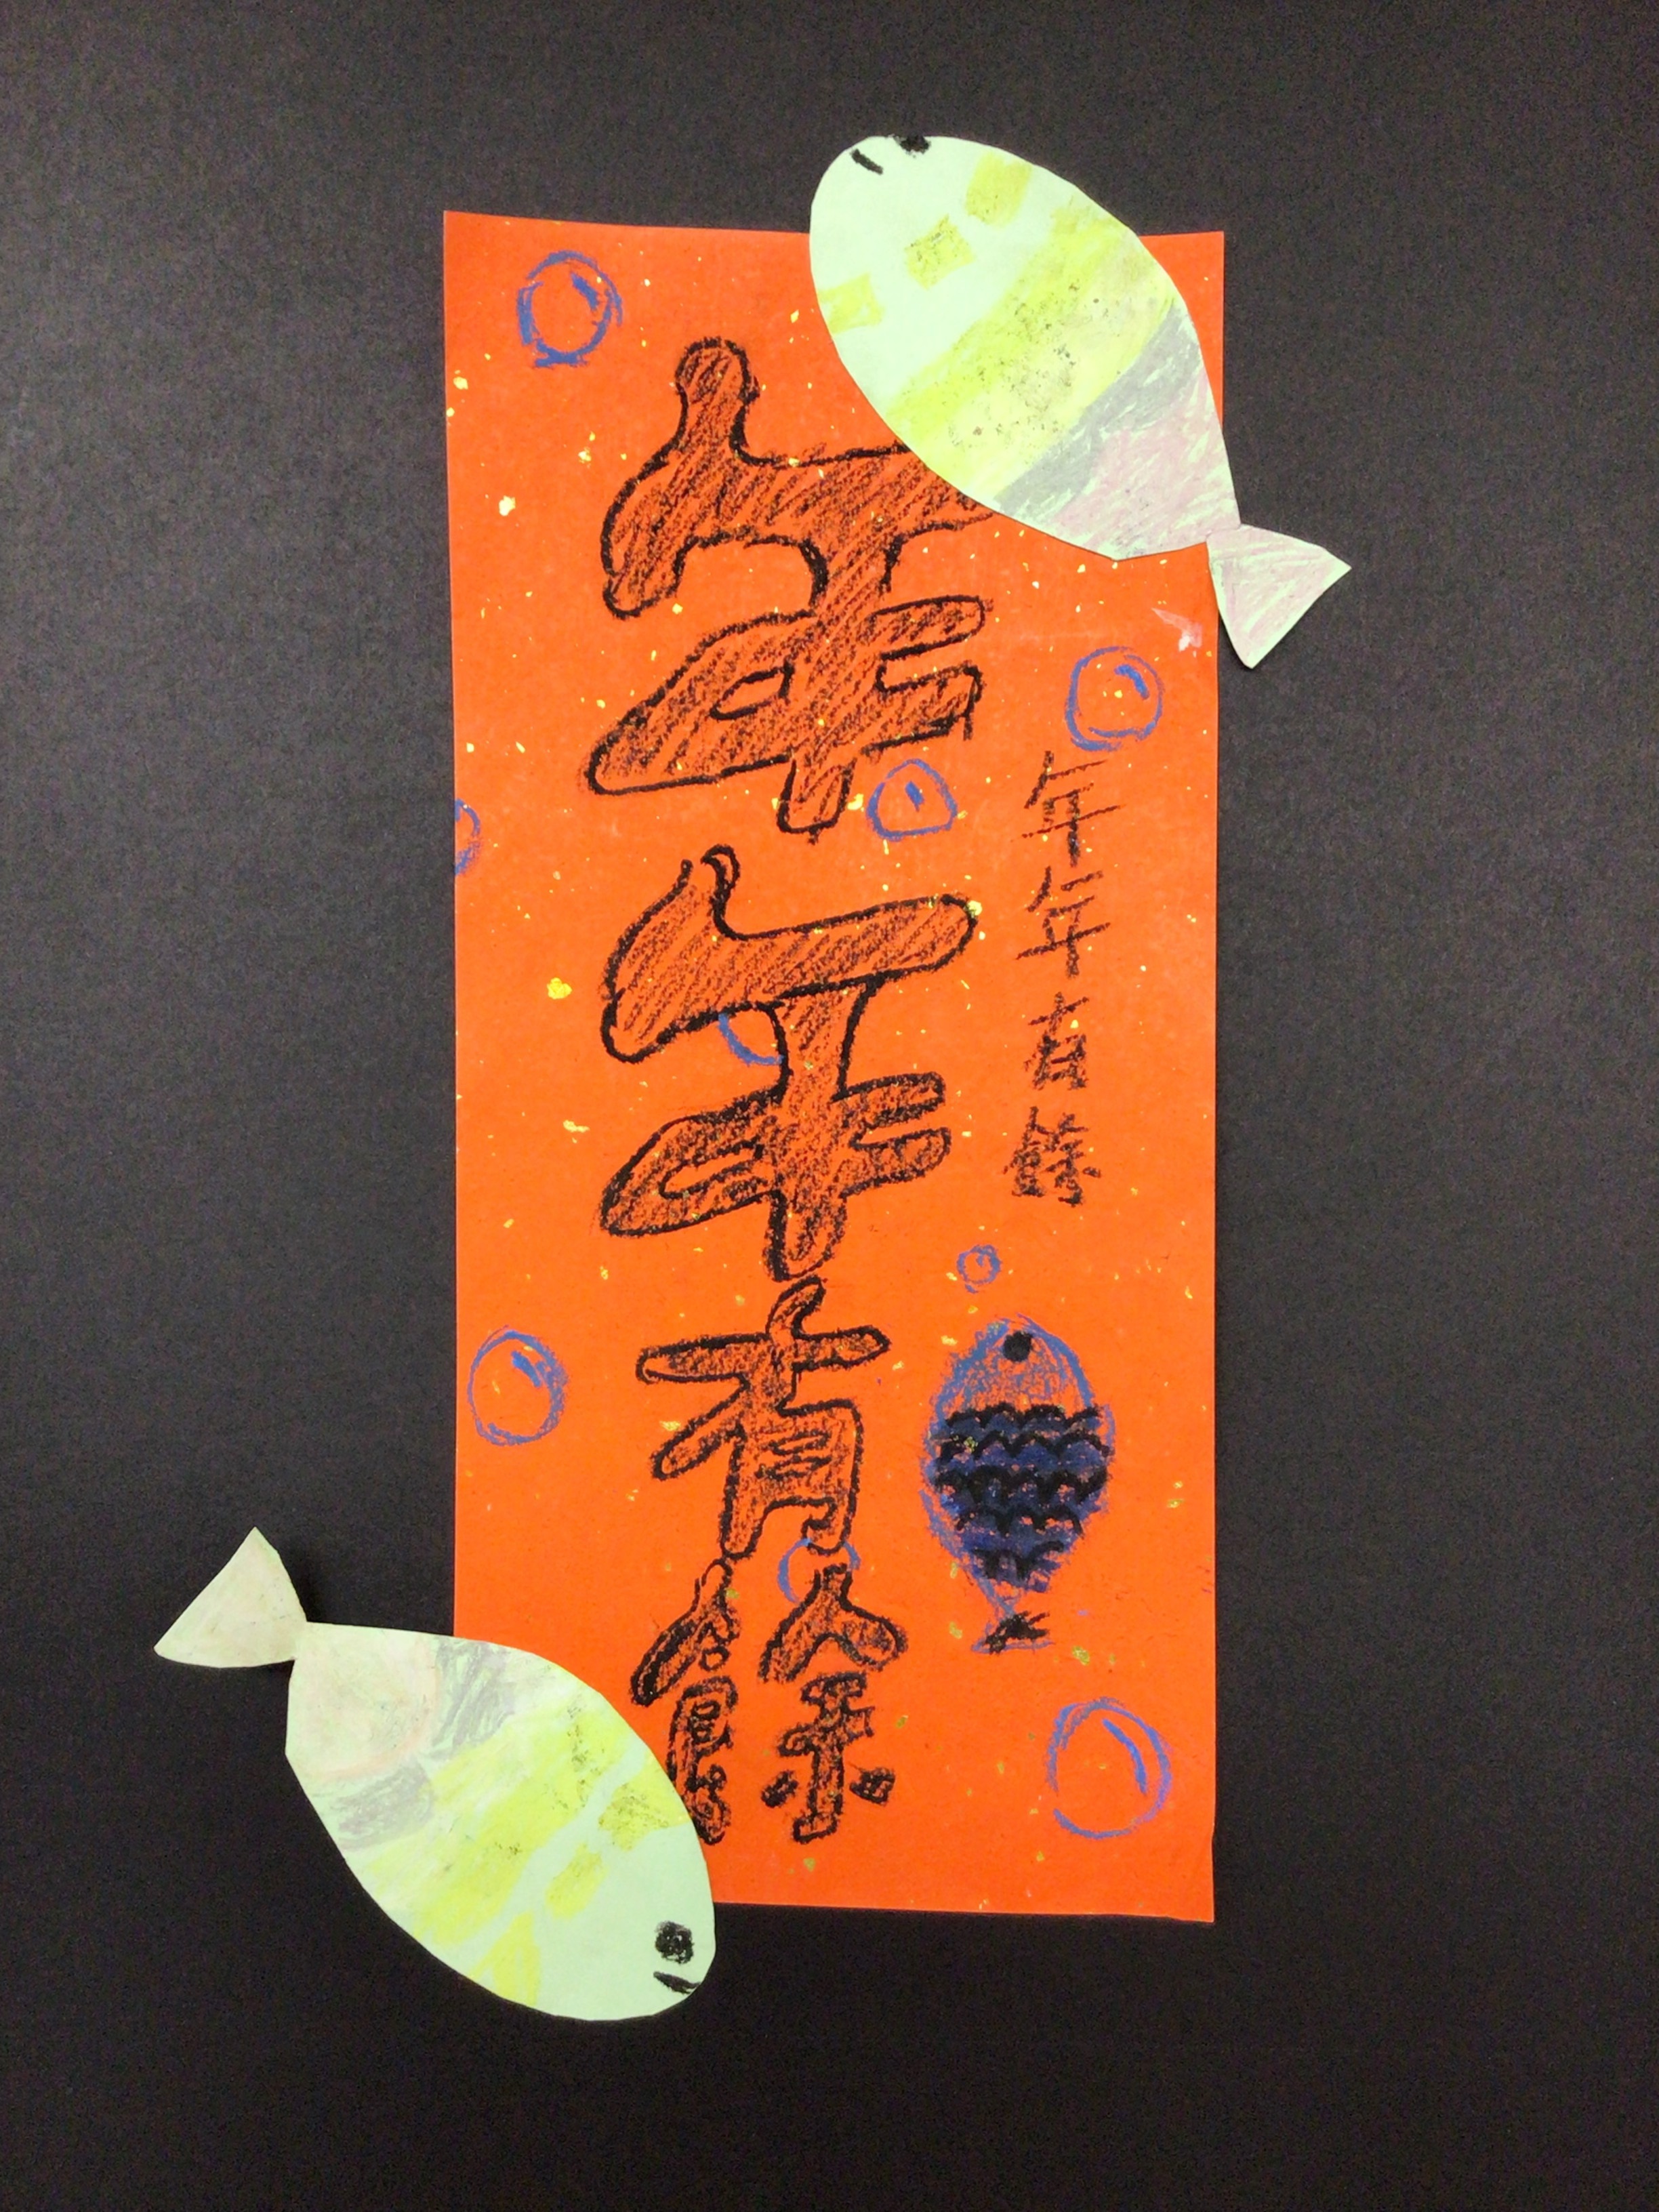 年年有餘
年年有餘